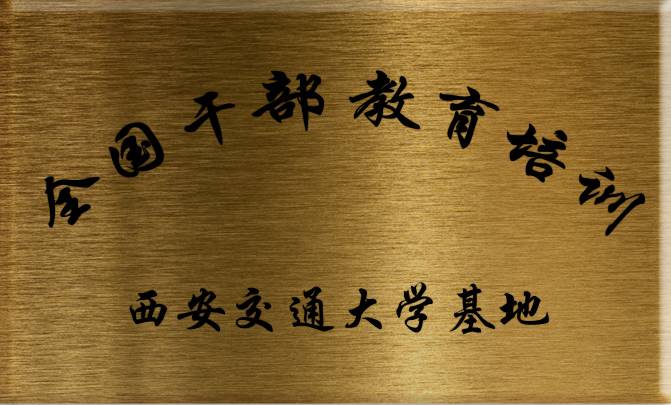 全国干部教育培训
西安交通大学基地